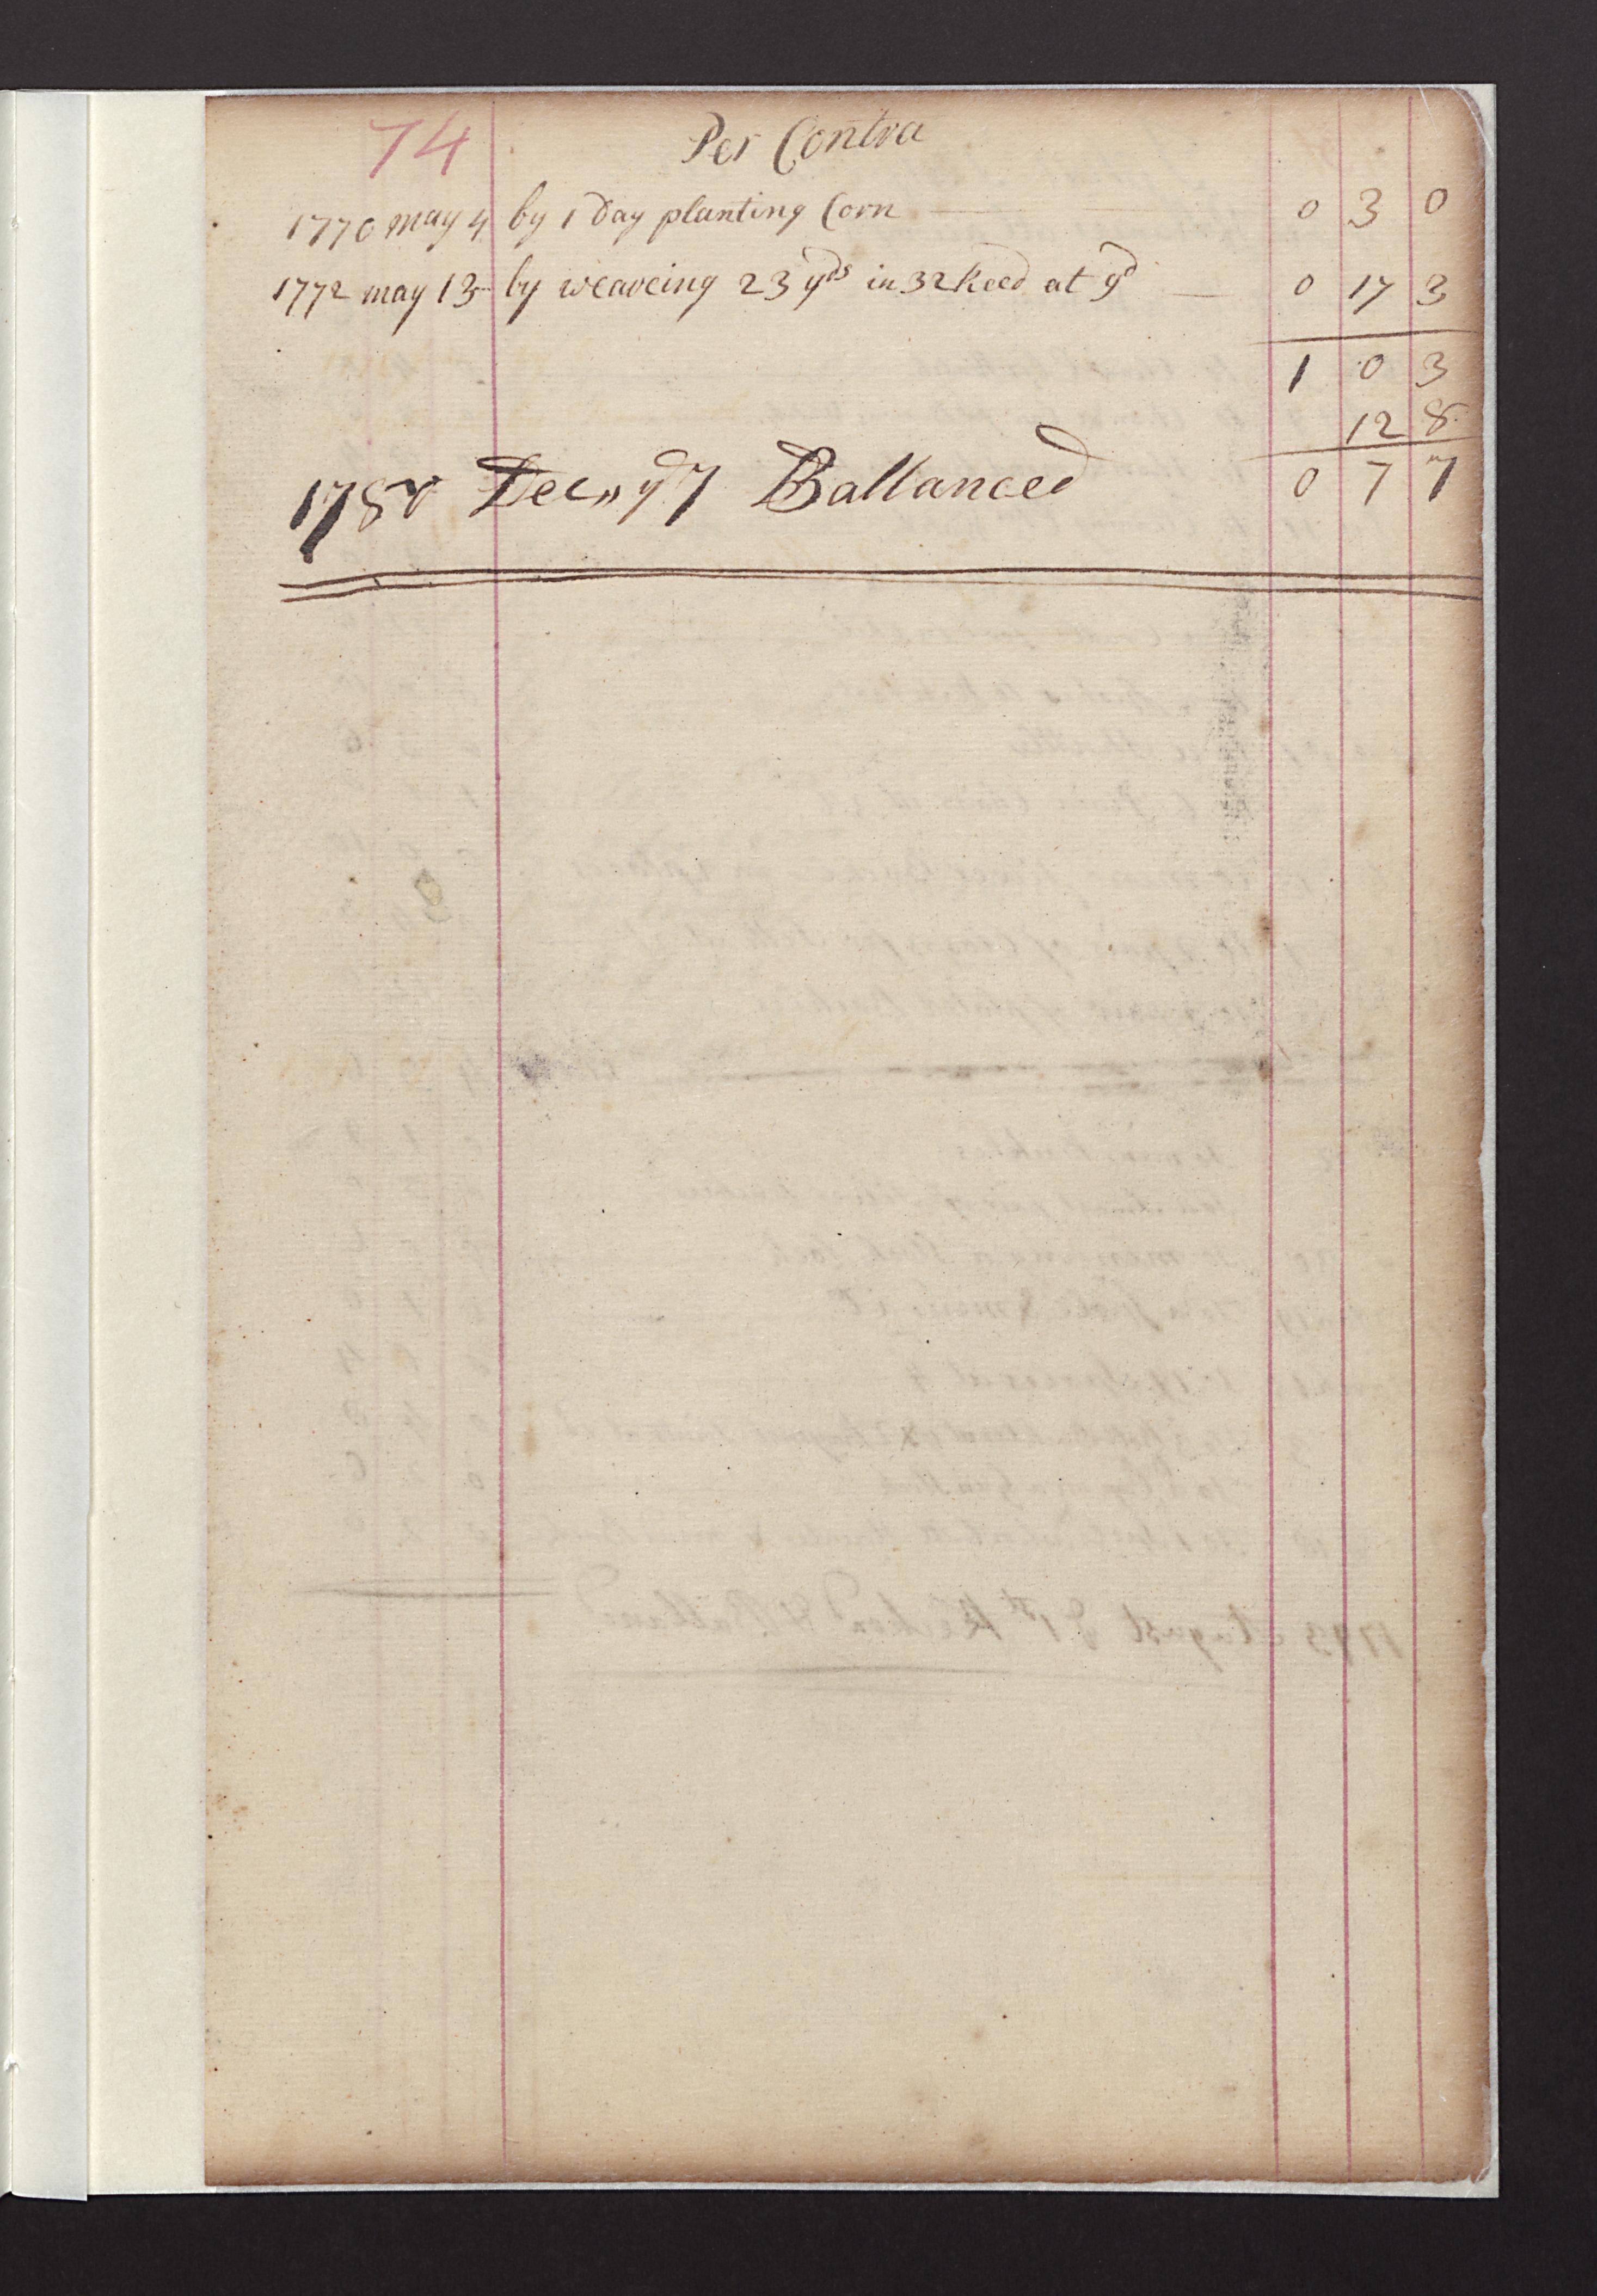 74 Per Contra
1770 may 4 by 1 Day planting Corn 0 3 0
1772 may 13 by weaveing 23 yds in 32 Reed at 9d 0 17 3
1 0 3
12 8
0 7 7
Dec,, ye 7 Ballanced